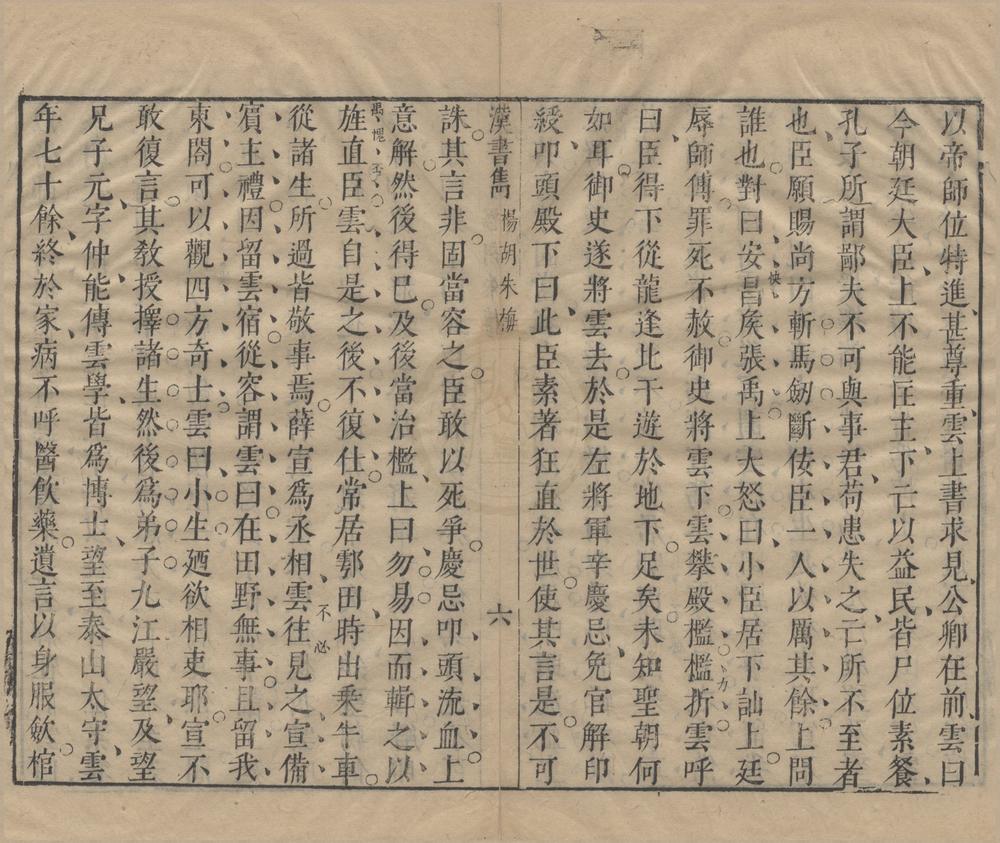 以帝師位特進甚尊重雲上書求見公卿在前雲曰
今朝廷大臣上不能匡主下亡以益民皆尸位素餐
孔子所謂鄙夫不可與事君苟患失之亡所不至者
也臣願賜尚方斬馬劒斷佞臣一人以厲其餘上問
誰也對曰安昌矦張禹上大怒曰小臣居下訕上廷
辱師傅罪死不赦御史將雲下雲攀殿檻檻折雲呼
曰臣得下從龍逄比干遊於地下足矣未知聖朝何
如耳御史遂將雲去於是左將軍辛慶忌免官解印
綬叩頭殿下曰此臣素著狂直於世使其言是不可
漢書雋 楊胡朱梅 六
誅其言非固當容之臣敢以死爭慶忌叩頭流血上
意解然後得已及後當治檻上曰勿易因而輯之以
旌直臣雲自是之後不復仕常居鄠田時出乘牛車
從諸生所過皆敬事焉薛宣爲丞相雲往見之宣備
賓主禮因留雲宿從容謂雲曰在田野無事且留我
東閤可以觀四方奇士雲曰小生廼欲相吏耶宣不
敢復言其敎授擇諸生然後爲弟子九江嚴望及望
兄子元字仲能傳雲學皆爲博士望至泰山太守雲
年七十餘終於家病不呼醫飮藥遺言以身服歛棺